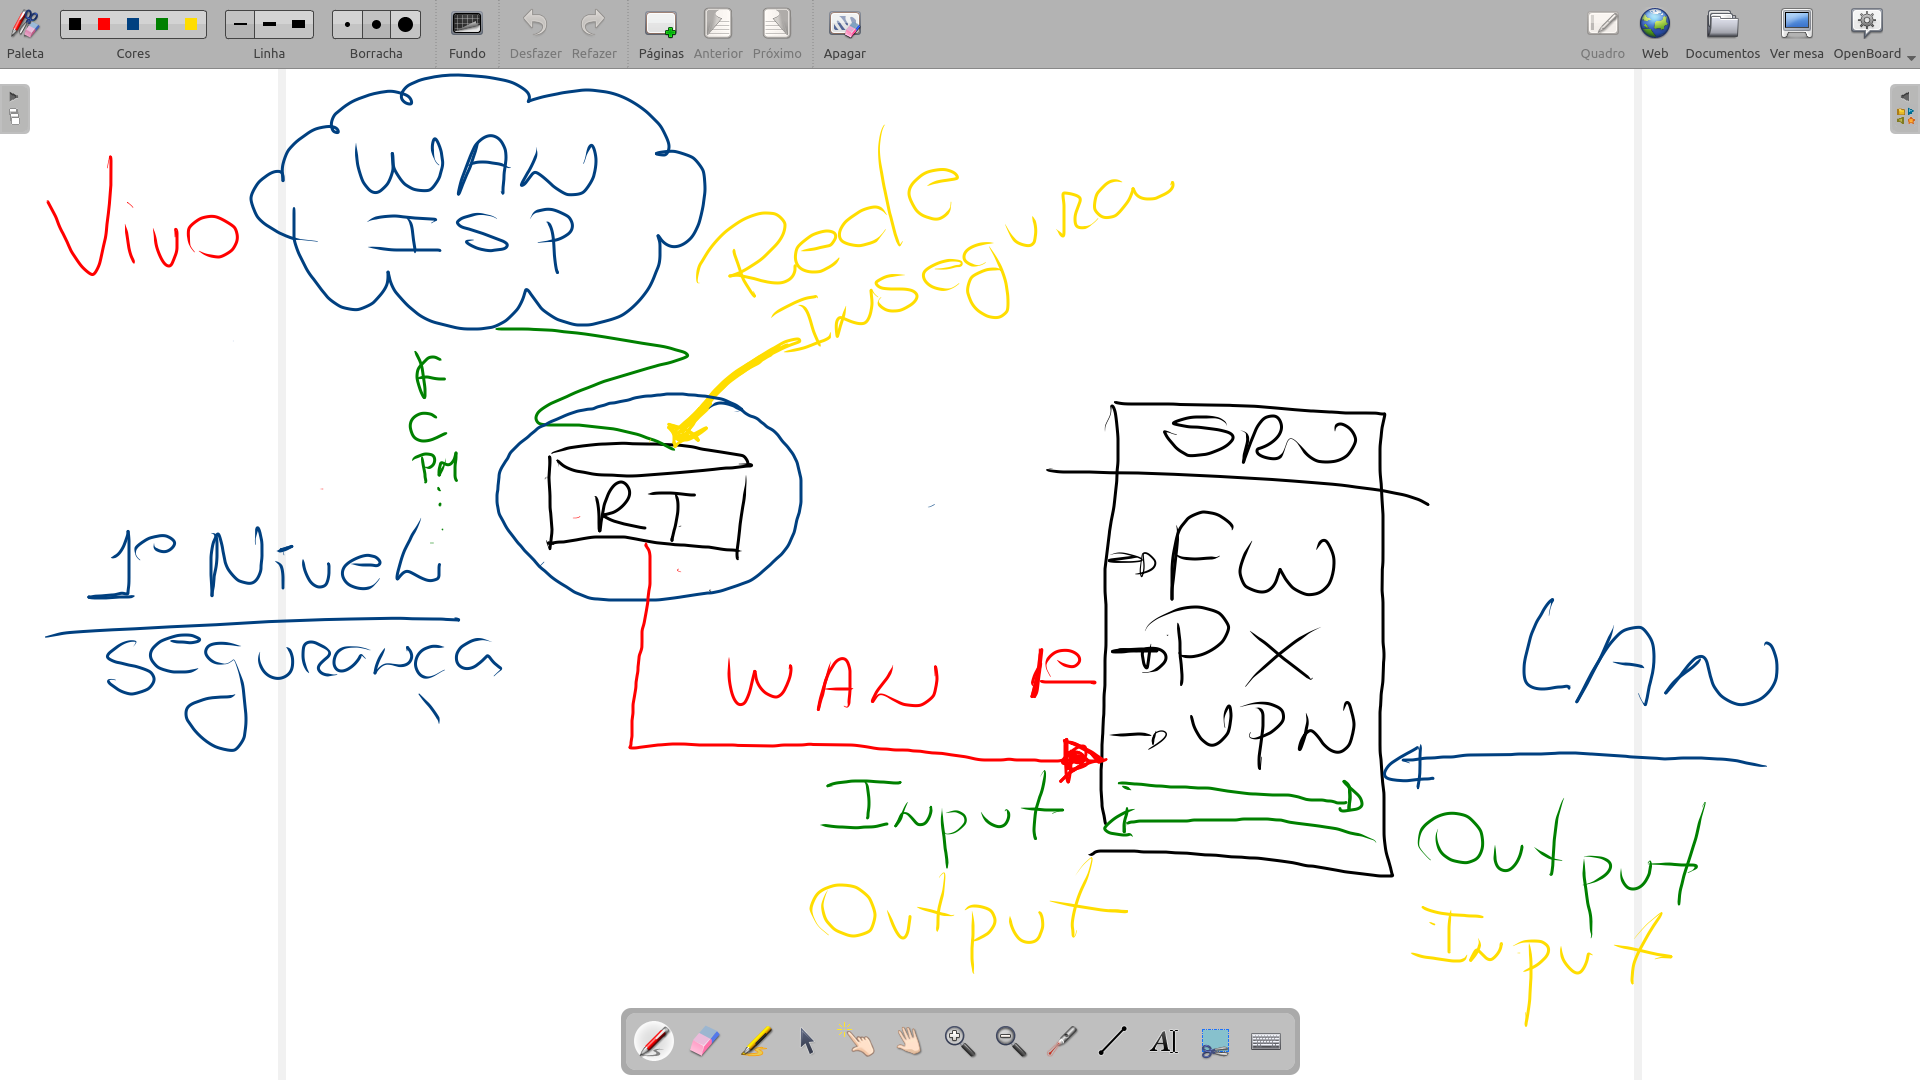 Paleta
Cores
Linha
Borracha
Fundo
Desfazer
Refazer
Páginas
Anterior
Próximo
Apagar
Quadro
Web
Documentos
Ver mesa
OpenBoard
WAN
ISP
Vivo
Rede
Insegura
F
C
PM
RT
1º Nivel
segurança
SRV
FW
PX
VPN
WAN
LAN
Input
Output
Output
Input